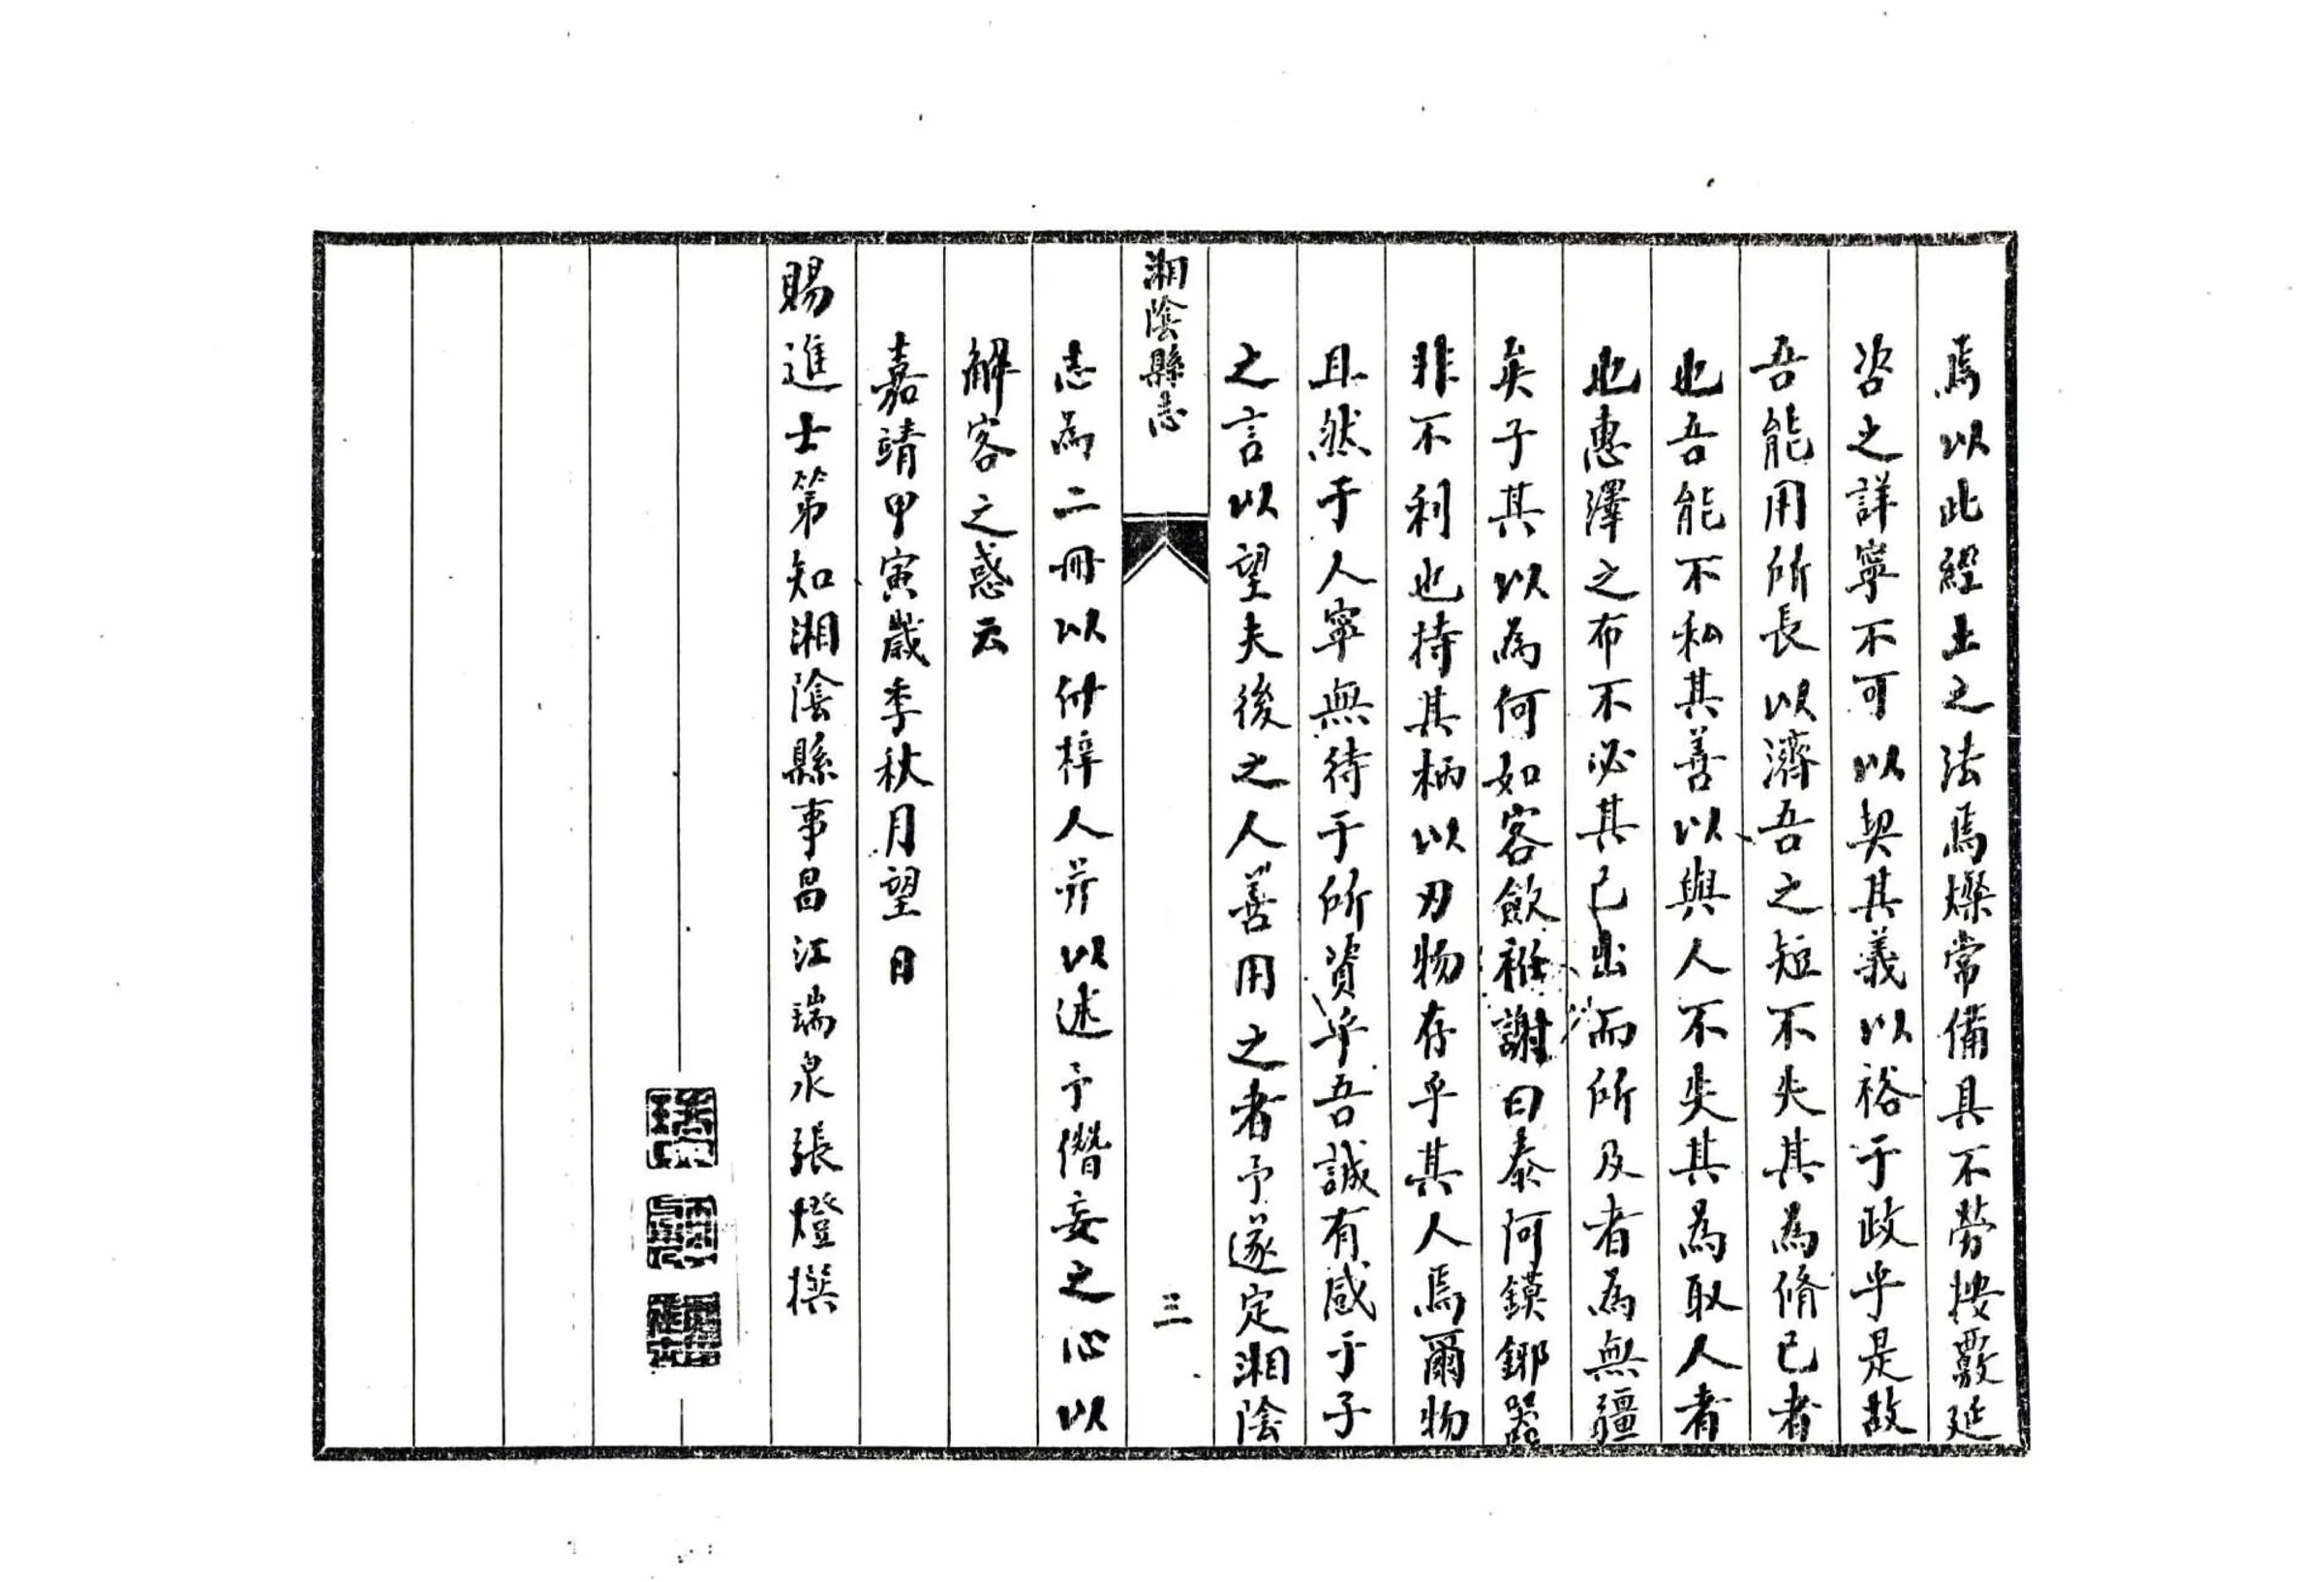 焉以此經土之法焉燦常備具不勞按覈延
咨之詳寧不可以契其義以裕于政乎是故
吾能用所長以濟吾之短不失其為脩已者
也吾能不私其善以與人不失其為取人者
也惠澤之布不必其已出而所及者為無疆
矣子其以為何如客斂袵謝曰泰阿鏌鎁器
非不利也持其柄以刃物存乎其人焉爾物
且然于人寧無待于所資乎吾誠有感于子
之言以望夫後之人善用之者予遂定湘陰
湘陰縣志
三
志為二冊以付梓人并以述予僭妄之心以
解客之惑云
嘉靖甲寅歲季秋月望日
賜進士第知湘陰縣事昌江瑞泉張燈撰
瑞泉